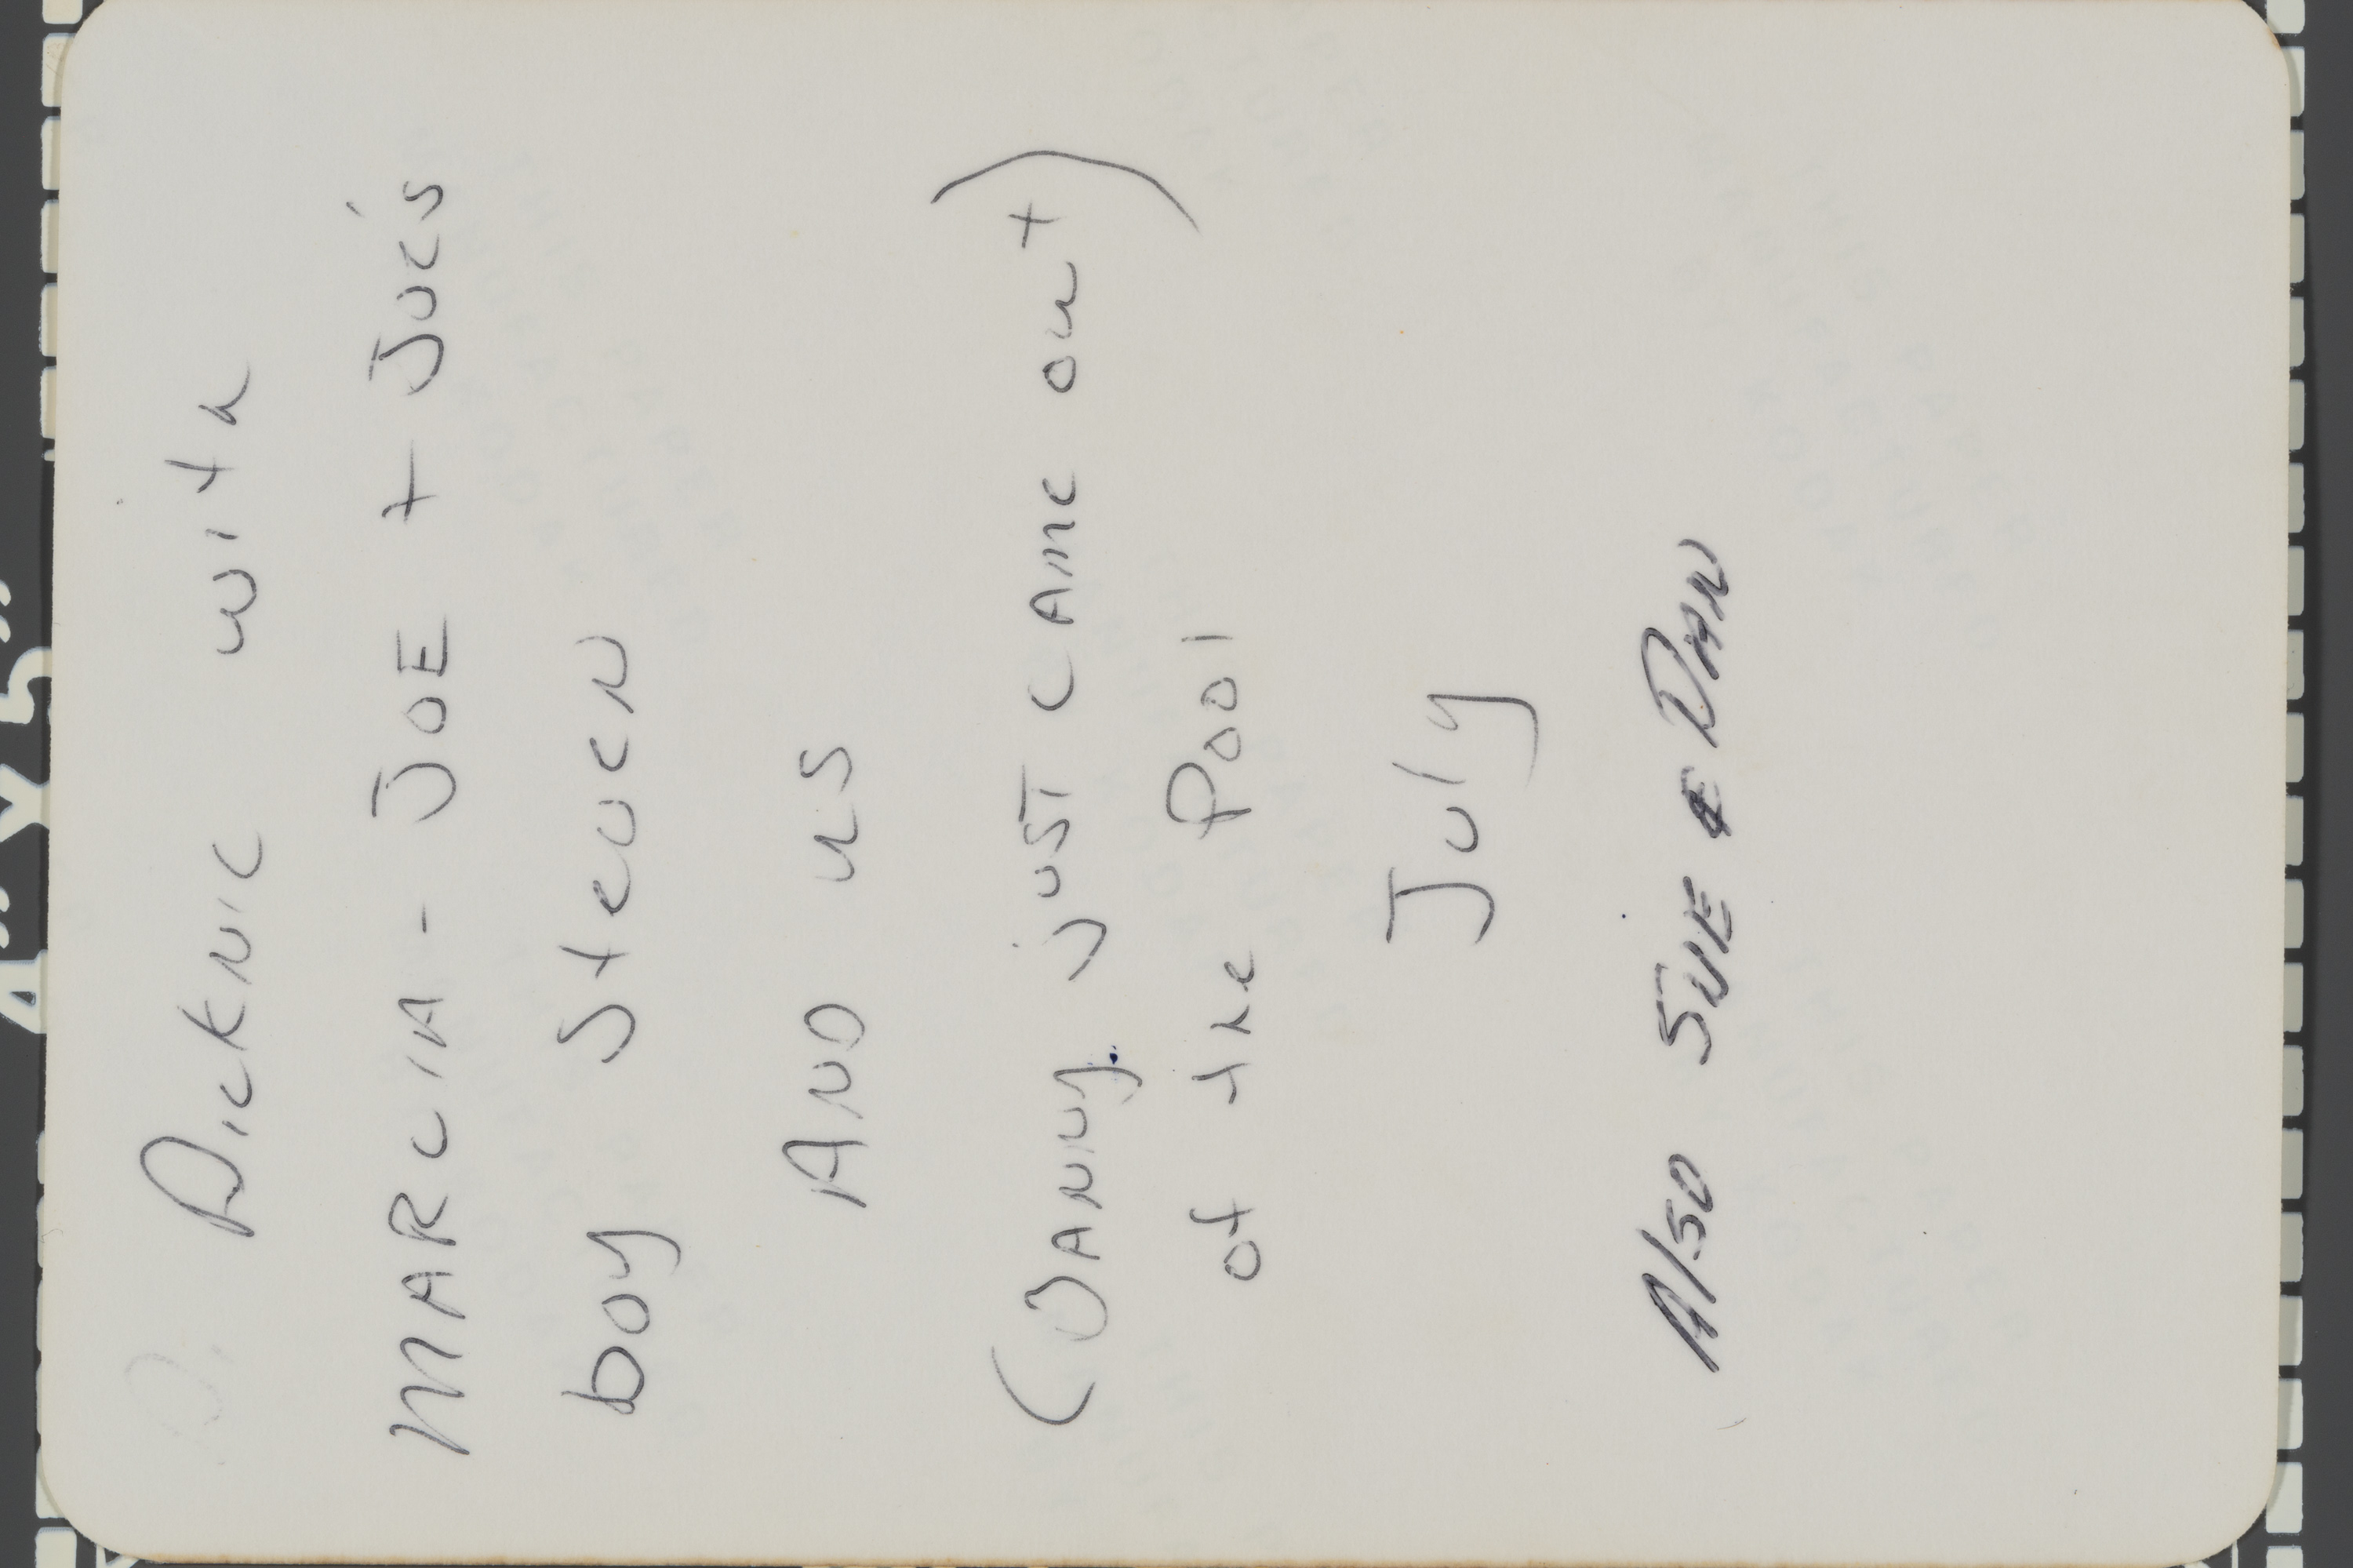 Picknic with
MARCIA - JOE + Joe's
boy Steven
AND us
(DANNY just CAME out)
of the Pool
July
Also SUE & DAN